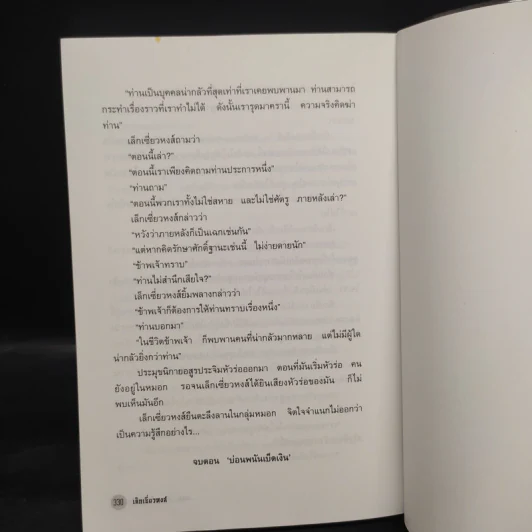 "ท่านเป็นบุคคลน่ากลัวที่สุดเท่าที่เราเคยพบพานมา ท่านสามารถ
กระทำเรื่องราวที่เราทำไม่ได้ ดังนั้นเรารุดมาครานี้ ความจริงคิดฆ่า
ท่าน"
เล็กเซี่ยวหงส์ถามว่า
"ตอนนี้เล่า?"
"ตอนนี้เราเพียงคิดถามท่านประการหนึ่ง"
"ท่านถาม"
"ตอนนี้พวกเราทั้งไม่ใช่สหาย และไม่ใช่ศัตรู ภายหลังเล่า?"
เล็กเซี่ยวหงส์กล่าวว่า
"หวังว่าภายหลังก็เป็นเฉกเช่นกัน"
"แต่หากคิดรักษาศักดิ์ฐานะเช่นนี้ ไม่ง่ายดายนัก"
"ข้าพเจ้าทราบ"
"ท่านไม่สำนึกเสียใจ?"
เล็กเซี่ยวหงส์ยิ้มพลางกล่าวว่า
"ข้าพเจ้าก็ต้องการให้ท่านทราบเรื่องหนึ่ง"
"ท่านบอกมา"
"ในชีวิตข้าพเจ้า ก็พบพานคนที่น่ากลัวมากหลาย แต่ไม่มีผู้ใด
น่ากลัวยิ่งกว่าท่าน"
ประมุขนิกายอสูรประจิมหัวร่อออกมา ตอนที่มันเริ่มหัวร่อ คน
ยังอยู่ในหมอก รอจนเล็กเซี่ยวหงส์ได้ยินเสียงหัวร่อของมัน ก็ไม่
พบเห็นมันอีก
เล็กเซี่ยวหงส์ยืนตะลึงลานในกลุ่มหมอก จิตใจจำแนกไม่ออกว่า
เป็นความรู้สึกอย่างไร...
จบตอน 'บ่อนพนันเบ็ดเงิน'
330 เล็กเซี่ยวหงส์